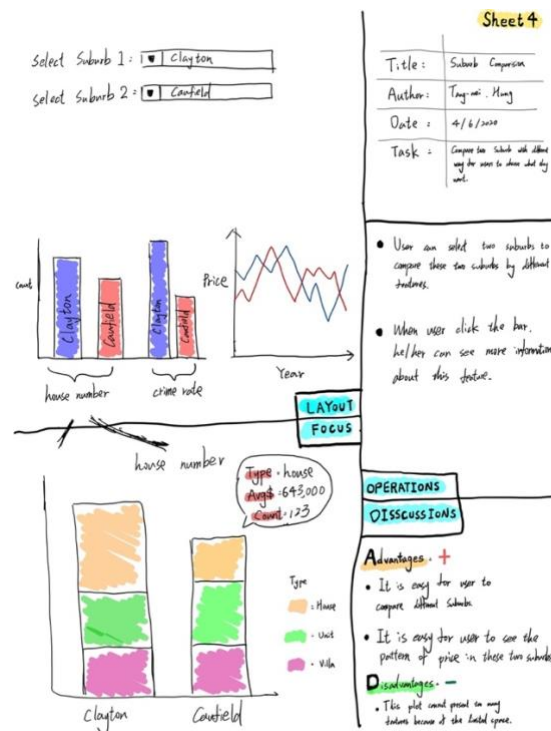 Sheet 4
Select Suburb 1 : Clayton
Select Suburb 2 : Caufield
Title : Suburb Comparison
Author : Tng-wei . Hung
Date : 4/6/2020
Task : Compare two Suburb with different
way for users to choose what they
want.
count
Clayton
Caufield
Clayton
Caufield
house number
crime rate
Price
Year
• User can select two suburbs to
compare these two suburbs by different
features.
• When user click the bar,
he/her can see more information
about this feature.
LAYOUT
FOCUS
OPERATIONS
DISSCUSSIONS
house number
Type : house
Avg$ : 643,000
Count : 123
Type
: House
: Unit
: Villa
Clayton
Caufield
Advantages . +
• It is easy for user to
compare different Suburbs.
• It is easy for user to see the
pattern of price in these two suburbs
Disadvantages . -
• This plot cannot present too many
features because of the limited space.